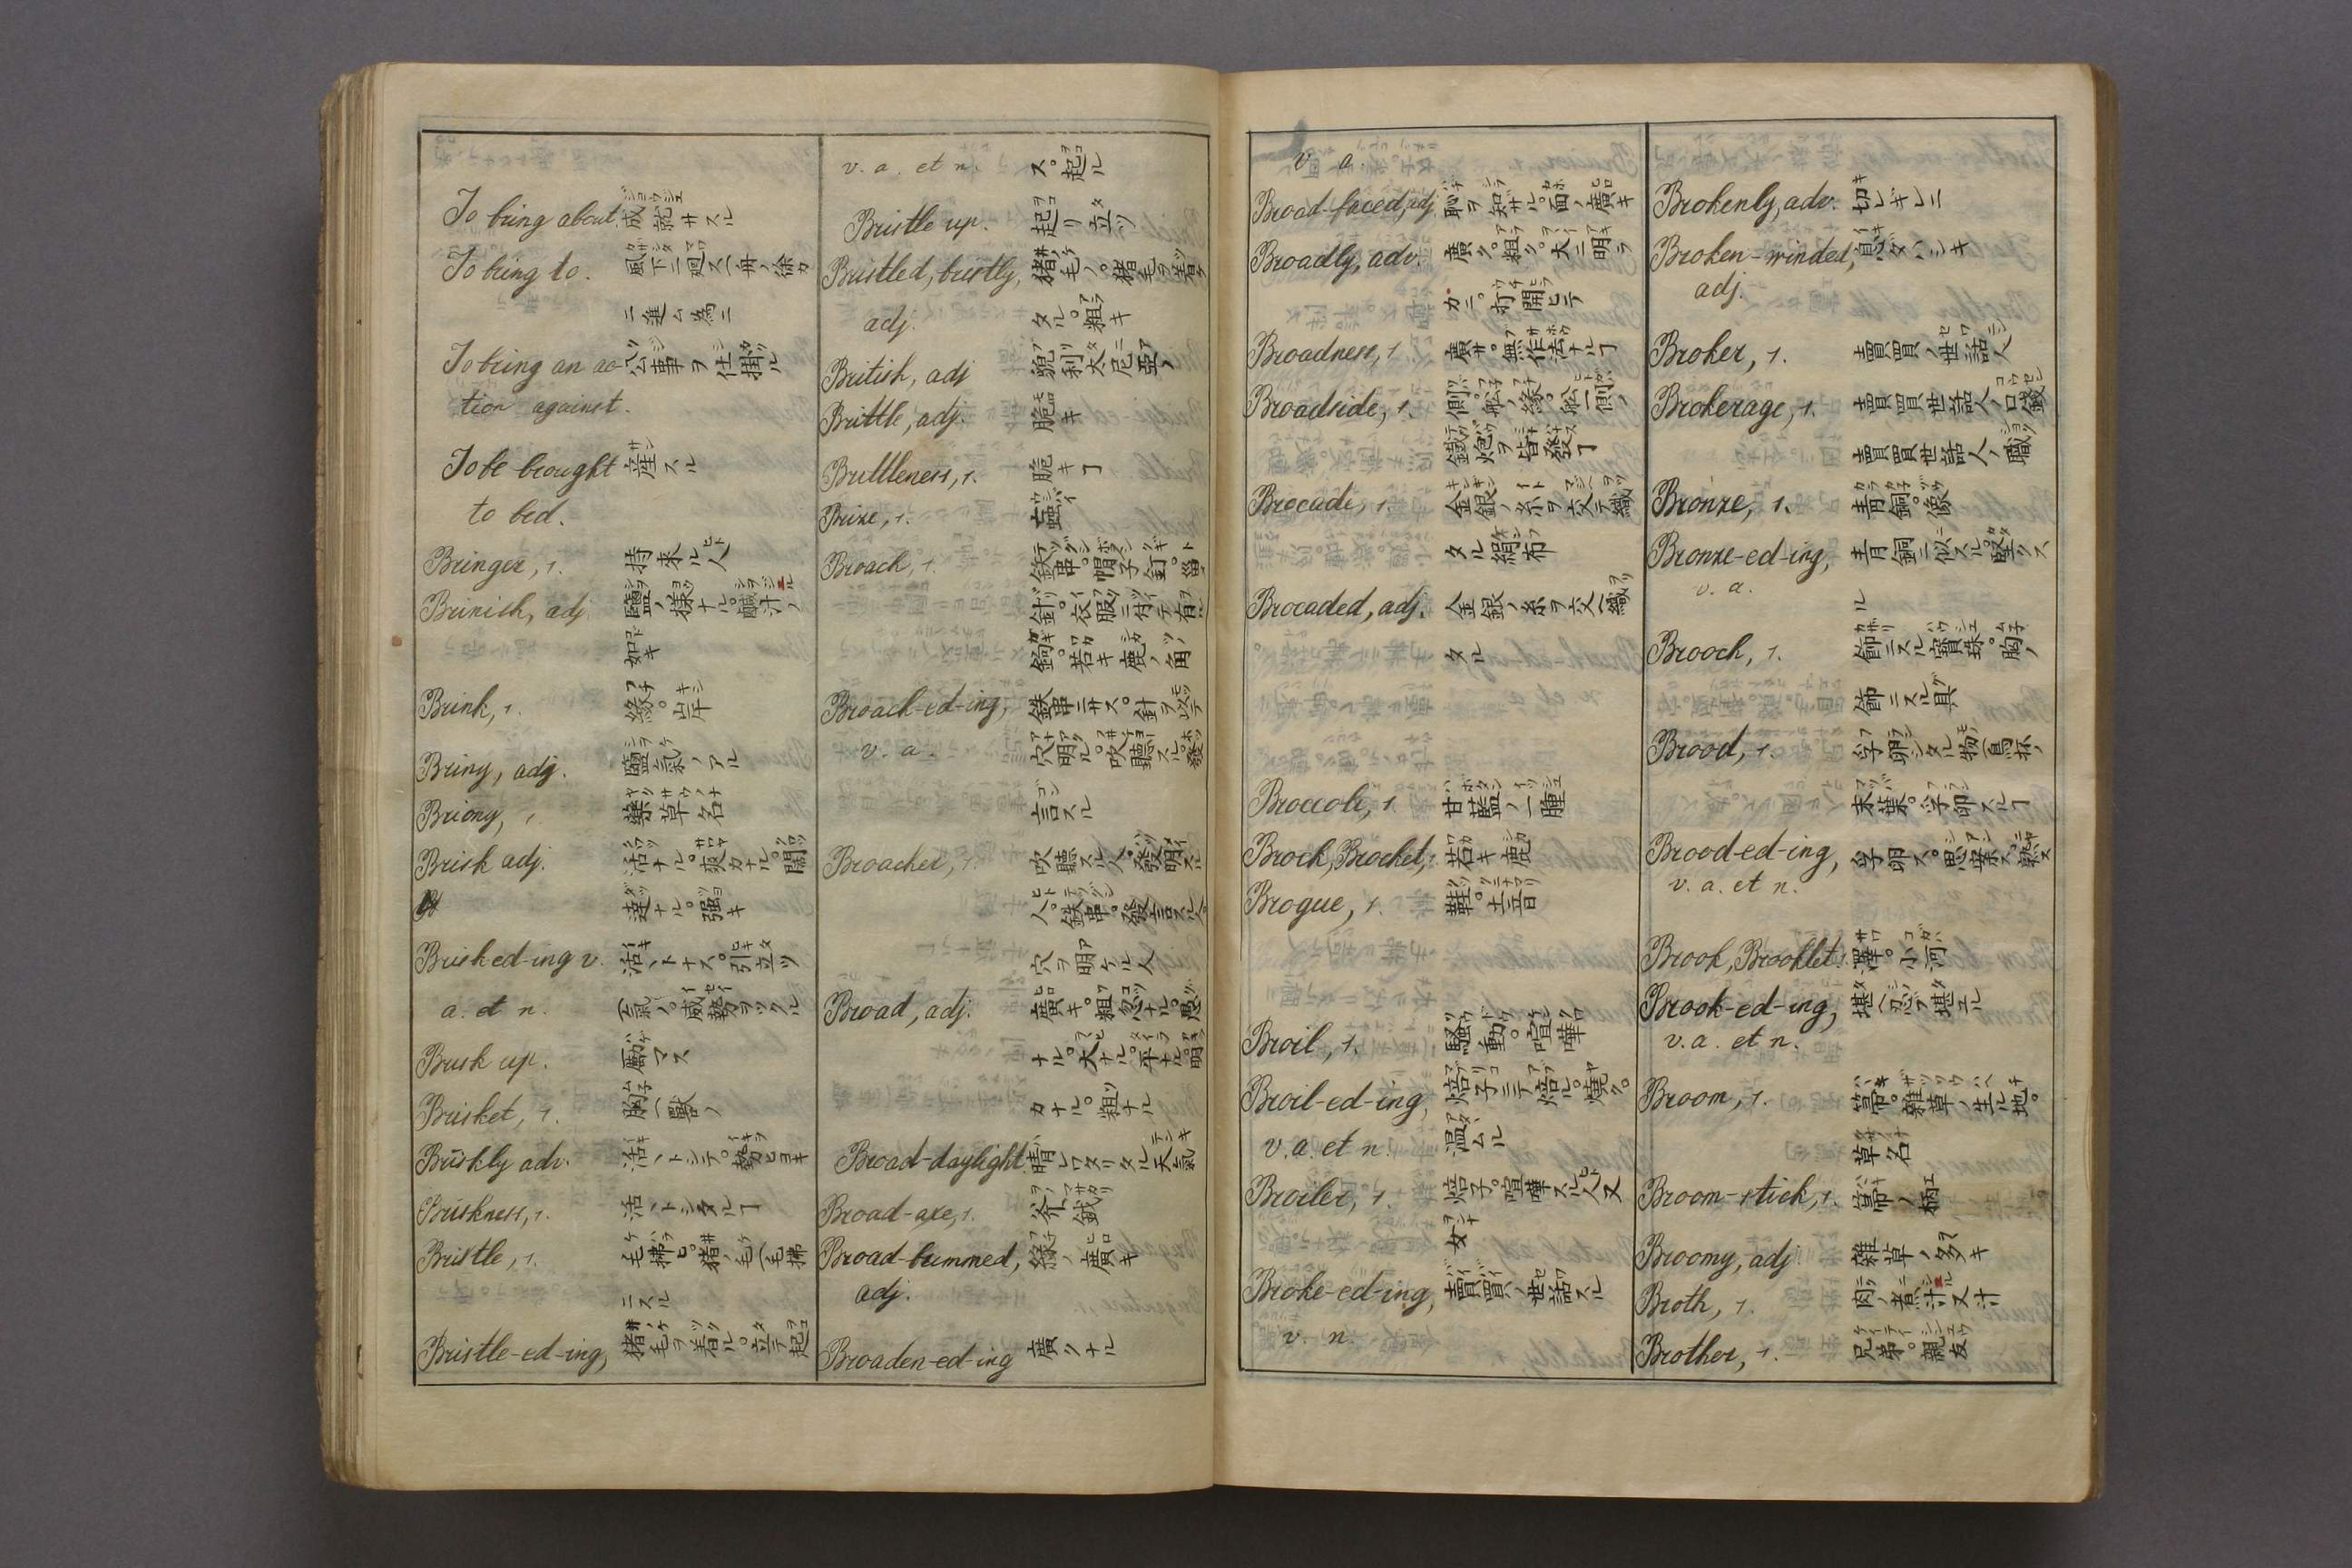 To bring about. 成就サスル
To bring to. 風下ニ廻ス(舟ノ徐カ
ニ進ム為ニ
To bring an ac- 公事ヲ仕掛ル
tion against.
To be brought 産スル
to bed.
Bringer, s. 持来ル人
Brinish, adj. 鹽ノ様ナル。鹹汁ノ
如キ
Brink, s. 縁。岸
Briny, adj. 鹽氣ノアル
Briony, s. 藥草ノ名
Brisk adj. 活ナル。爽カナル。闊
達ナル。強キ
Brisk ed-ing v. 活トナス。引立ツ
a. et n. (氣ノ。威勢ヲツクル
Brisk up. 勵マス
Brisket, s. 胸(獸ノ
Briskly adv. 活トシテ。勢ヒヨキ
Briskness, s. 活トシタルヿ
Bristle, s. 毛拂ヒ。猪ノ毛(毛拂
ニスル
Bristle-ed-ing, 猪毛ヲ着ル。立テ起
v. a. et n. ス。起ル
Bristle up. 起リ立ツ
Bristled, bristly, 猪毛ノ。猪毛ヲ着ケ
adj. タル。粗キ
British, adj 貌利太尼亞ノ
Brittle, adj. 脆キ
Brittleness, s. 脆キヿ
Brize, s. 䖟
Broach, s. 鉄串。帽子釘。留
針。衣服ニ付テ有
鉤。若キ鹿ノ角
Broach-ed-ing, 鉄串ニサス。針ヲ以テ
v. a. 穴明ル。吹聽スル。發
言スル
Broacher, s. 吹聽スル人。發明スル
人。鉄串。發言スル人。
穴ヲ明ケル人
Broad, adj. 廣キ。粗忽ナル。愚
ナル。大ナル。平ナル。明
カナル。粗ナル
Broad-daylight. 晴レワタリタル天氣
Broad-axe, s. 斧鉞
Broad-brimmed, 縁ノ廣キ
adj.
Broaden-ed-ing 廣クナル
v. a.
Broad-faced, adj. 恥ヲ知サル。面ノ廣キ
Broadly, adv. 廣ク。粗ク。大ニ明ラ
カニ。打開ヒテ
Broadness, s. 廣サ。無作法ナルヿ
Broadside, s. 側。舩ノ縁。舩一側ノ
鐵炮ヲ皆發スヿ
Brocade, s. 金銀ノ糸ヲ交テ織
タル絹布
Brocaded, adj. 金銀ノ糸ヲ交(織
タル
Broccoli, s. 甘藍ノ一種
Brock, Brocket, s. 若キ鹿
Brogue, s. 鞋。土音
Broil, s. 騒動。喧嘩
Broil-ed-ing, 焙子ニテ焙ル。燒ク。
v. a. et n. 温ムル
Broiler, s. 焙子。喧嘩スル人又
女
Broke-ed-ing, 賣買ノ世話スル
v. n.
Brokenly, adv. 切レギレニ
Broken-winded, 息ダハシキ
adj.
Broker, s. 賣買ノ世話人
Brokerage, s. 賣買世話人ノ口錢
賣買世話人ノ職
Bronze, s. 青銅。像
Bronze-ed-ing, 青銅ニ似スル。堅クス
v. a. ル
Brooch, s. 飾ニスル寶珠。胸ノ
飾ニスル具
Brood, s. 孚卵シタル物(鳥抔ノ
末葉。孚卵スルヿ
Brood-ed-ing, 孚卵ス。思案ス。熟ス
v. a. et n.
Brook, Brooklet. 澤。小河
Brook-ed-ing, 堪(忍ヲ堪エル
v. a. et n.
Broom, s. 箒。雜草ノ生ル地。
草ノ名
Broom-stick, s. 箒ノ柄
Broomy, adj. 雜草ノ多キ
Broth, s. 肉ノ煮汁又汁
Brother, s. 兄弟。親友